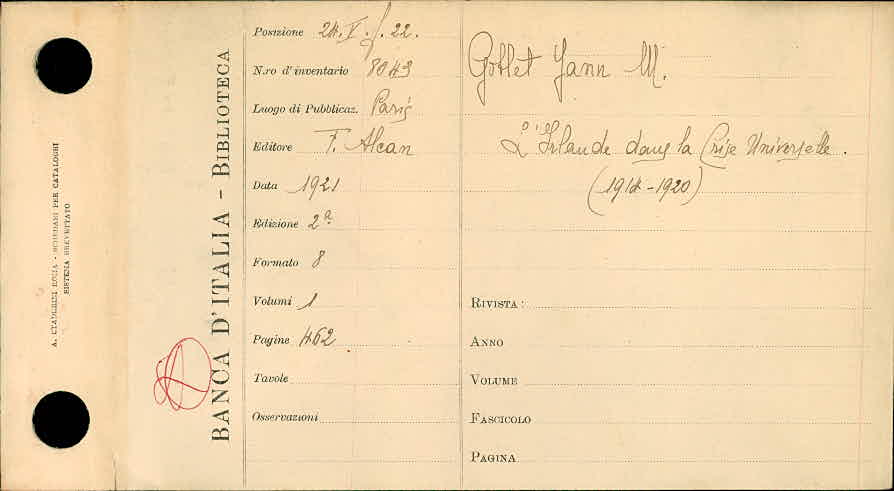 A. STADERINI ROMA - SCHEDARI PER CATALOGHI
SISTEMA BREVETTATO
BANCA D'ITALIA - BIBLIOTECA
Posizione 24. V. f. 22.
N.ro d'inventario 8043
Luogo di Pubblicaz. Paris
Editore F. Alcan
Data 1921
Edizione 2ª
Formato 8
Volumi 1
Pagine 462
Tavole
Osservazioni
Goblet Yann M.
L'Irlande dans la Crise Universelle.
(1914-1920)
RIVISTA:
ANNO
VOLUME
FASCICOLO
PAGINA